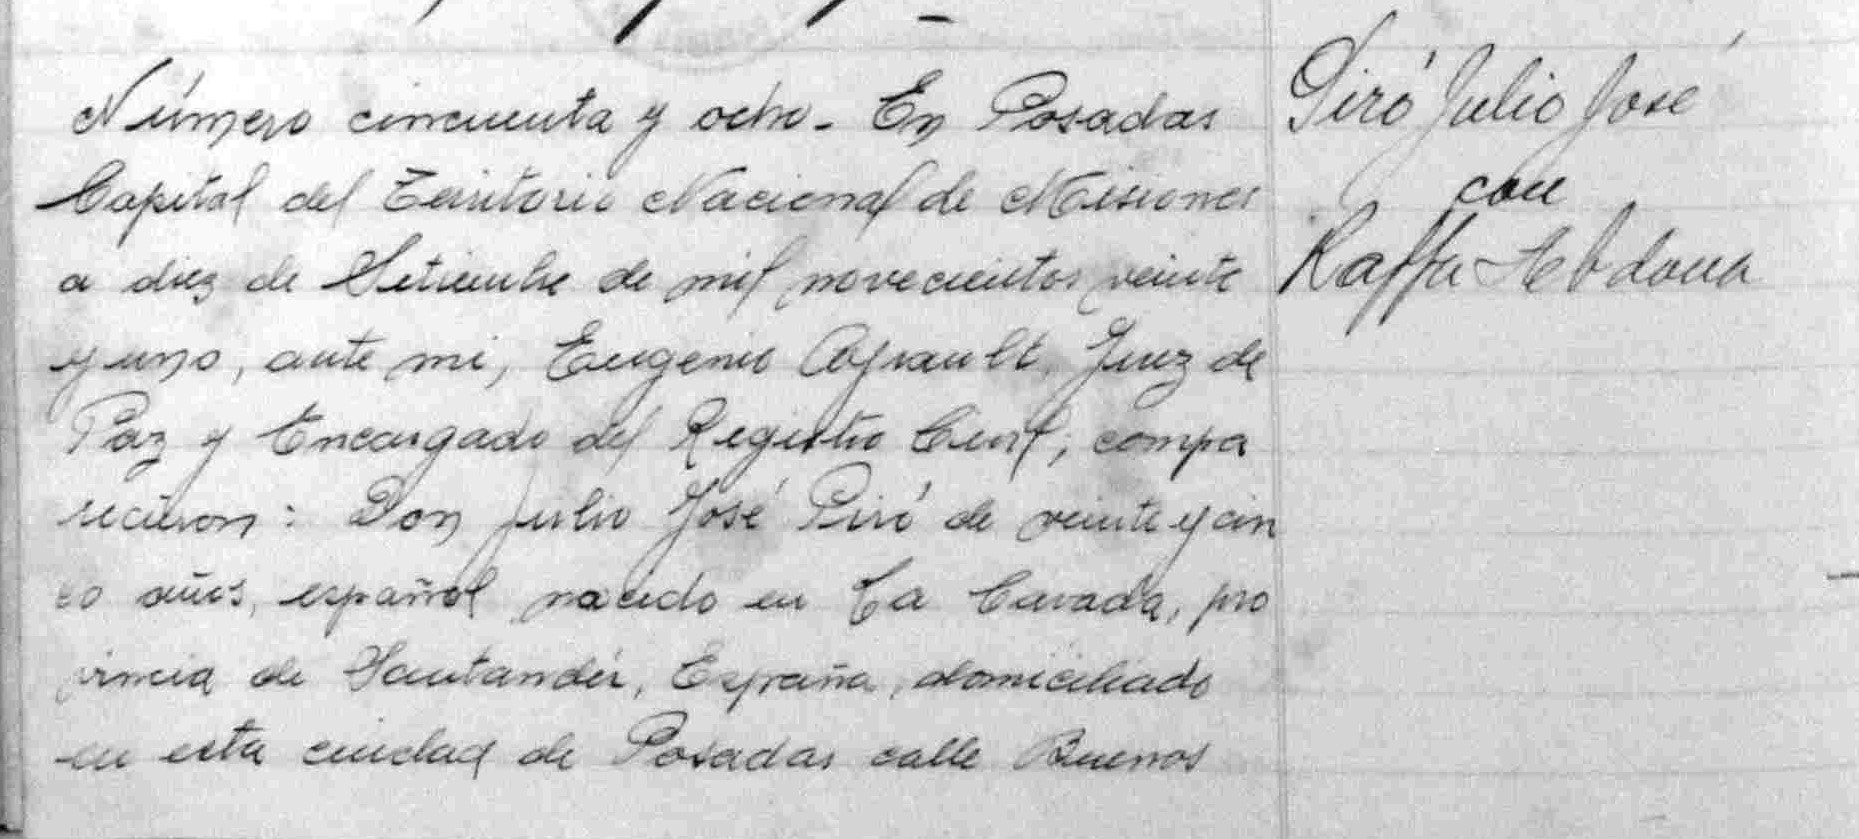 Número cincuenta y ocho. En Posadas
Capital del Territorio Nacional de Misiones
a diez de Setiembre de mil novecientos veinte
y uno, ante mi, Eugenio Ayrault, Juez de
Paz y Encargado del Registro Civil, compa
recieron: Don Julio José Piró de veinte y cin
co años, español nacido en La Cavada, pro
vincia de Santander, España, domiciliado
en esta ciudad de Posadas calle Buenos
Piró Julio José
con
Raffa Abdona